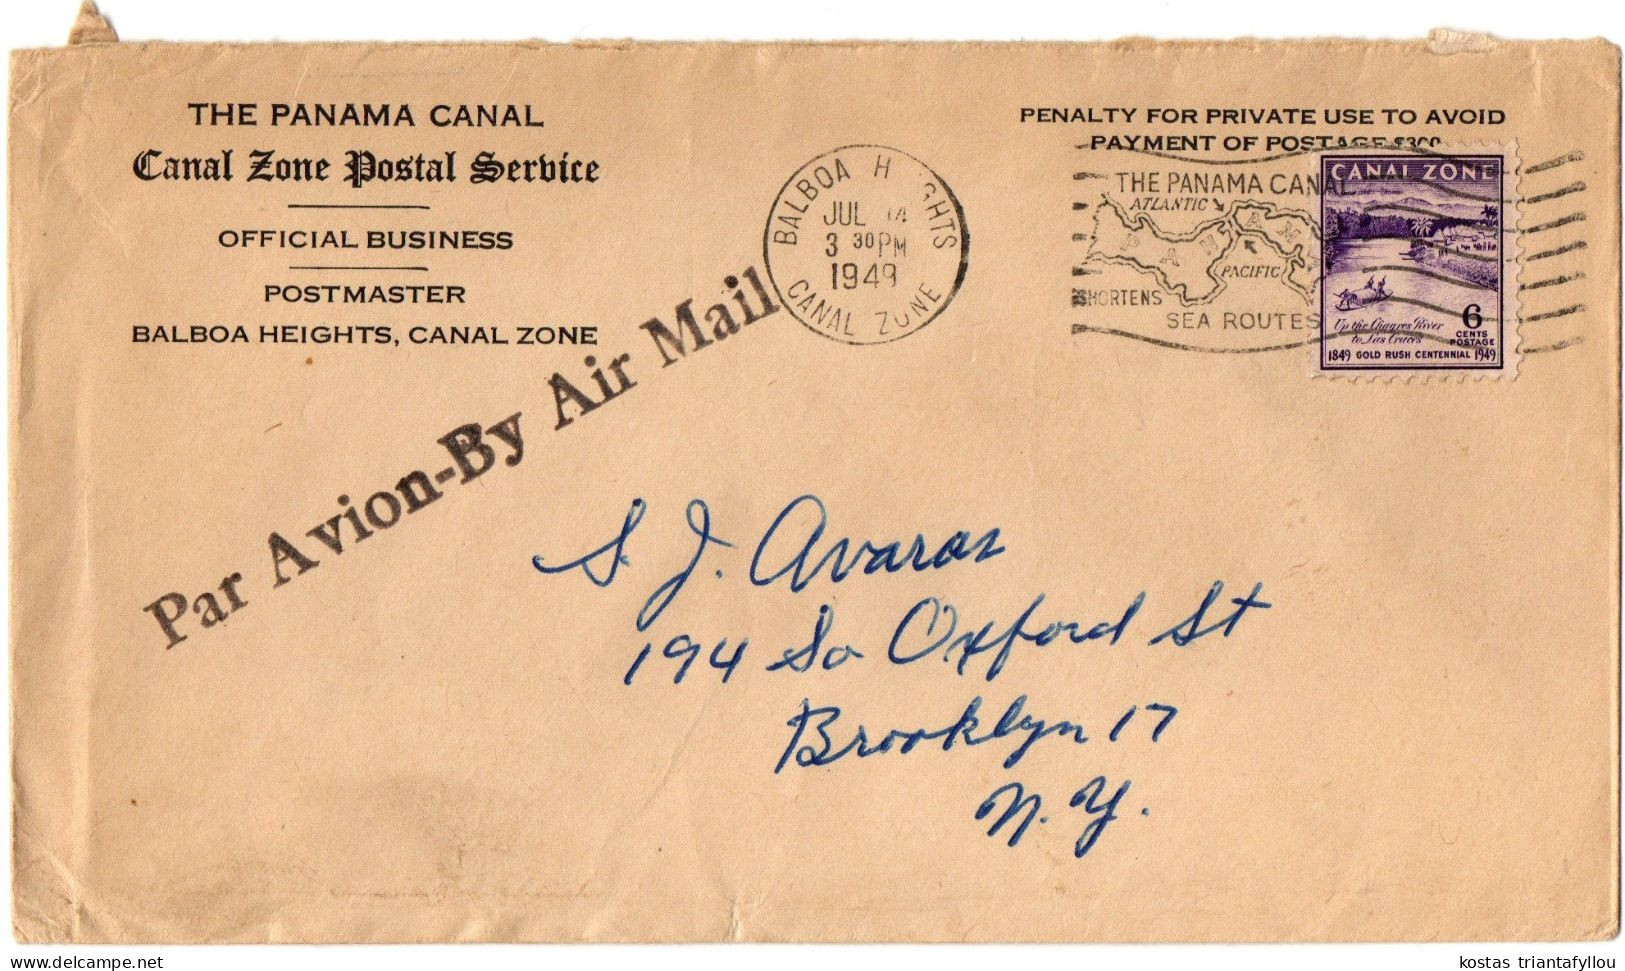 THE PANAMA CANAL
Canal Zone Postal Service
OFFICIAL BUSINESS
POSTMASTER
BALBOA HEIGHTS, CANAL ZONE
PENALTY FOR PRIVATE USE TO AVOID
PAYMENT OF POSTAGE $300
BALBOA H GHTS
JUL 14
3 30 PM
1949
CANAL ZONE
THE PANAMA CANAL
ATLANTIC
PANAMA
PACIFIC
SHORTENS
SEA ROUTES
CANAL ZONE
Up the Chagres River
to Las Cruces
6
CENTS
POSTAGE
1849 GOLD RUSH CENTENNIAL 1949
Par Avion-By Air Mail
S. J. Avaras
194 So Oxford St
Brooklyn 17
N. Y.
kostas triantafyllou
delcampe.net